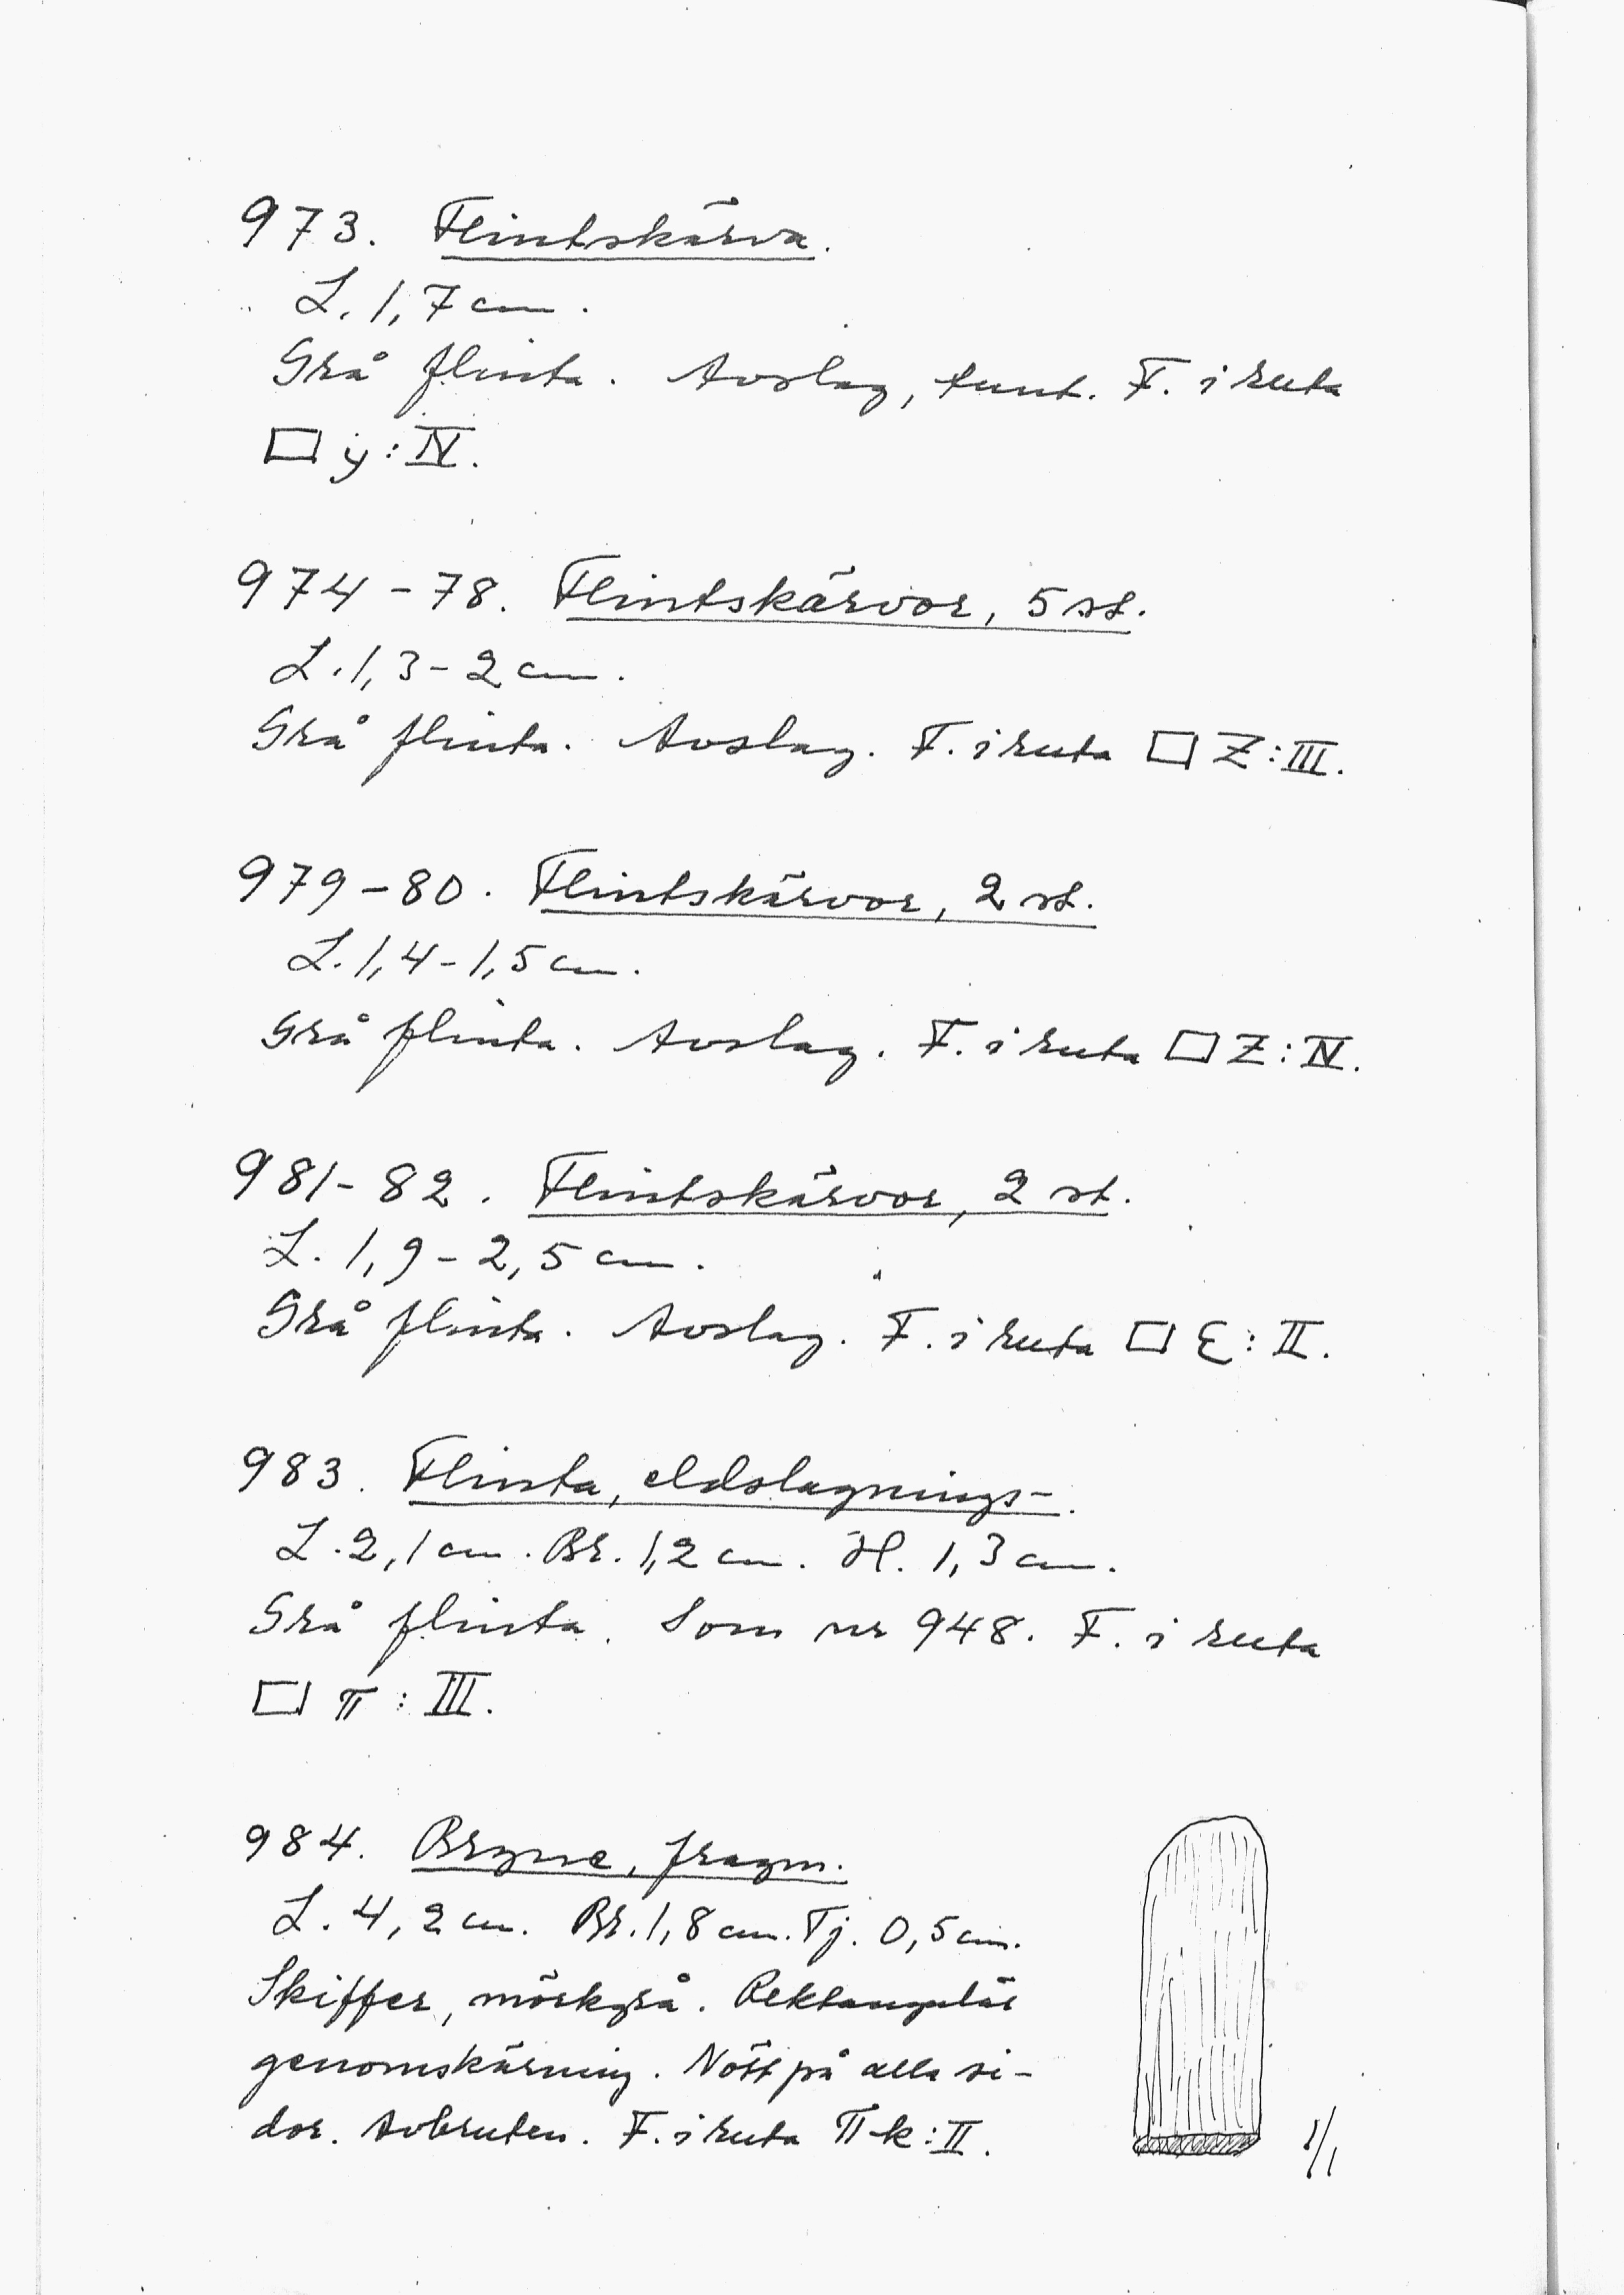 973. Flintskärva.
L. 1,7 cm.
Grå flinta. Avslag, tunt. F. i ruta
□ y : IV.
974-78. Flintskärvor, 5 st.
L. 1,3-2 cm.
Grå flinta. Avslag. F. i ruta □ Z : III.
979-80. Flintskärvor, 2 st.
L. 1,4-1,5 cm.
Grå flinta. Avslag. F. i ruta □ Z : IV.
981-82. Flintskärvor, 2 st.
L. 1,9-2,5 cm.
Grå flinta. Avslag. F. i ruta □ Σ : II.
983. Flinta, eldslagnings-.
L. 2,1 cm. Br. 1,2 cm. H. 1,3 cm.
Grå flinta. Som nr 948. F. i ruta
□ π : III.
984. Bryne, fragm.
L. 4,2 cm. Br. 1,8 cm. Tj. 0,5 cm.
Skiffer, mörkgrå. Rektangulär
genomskärning. Nött på alla si-
dor. Avbruten. F. i ruta π-k : II.
1/1